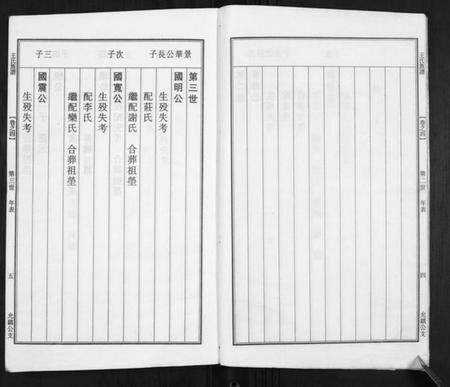 王氏族譜
【卷之四】
第二世 年表
四
允鎮公支
景華公長子
次子
三子
第三世
國明公
生歿失考
配莊氏
繼配謝氏 合葬祖塋
國寬公
生歿失考
配李氏
繼配欒氏 合葬祖塋
國震公
生歿失考
王氏族譜
【卷之四】
第三世 年表
五
允鎮公支